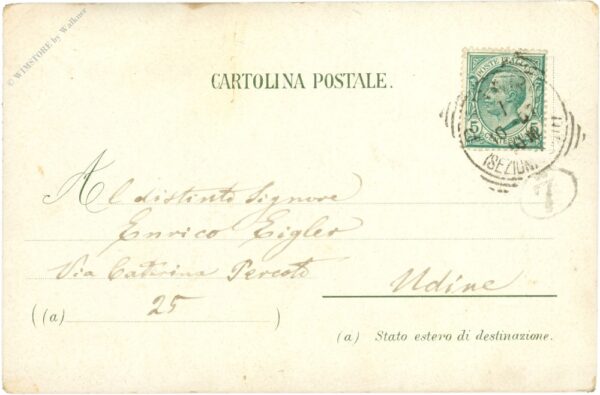 © WIMSTORE by Walkner
CARTOLINA POSTALE.
POSTE ITALIANE
5
(SEZION
7
Al distinto Signore
Enrico Eigler
Via Caterina Percoto
25
Udine
(a)
(a) Stato estero di destinazione.